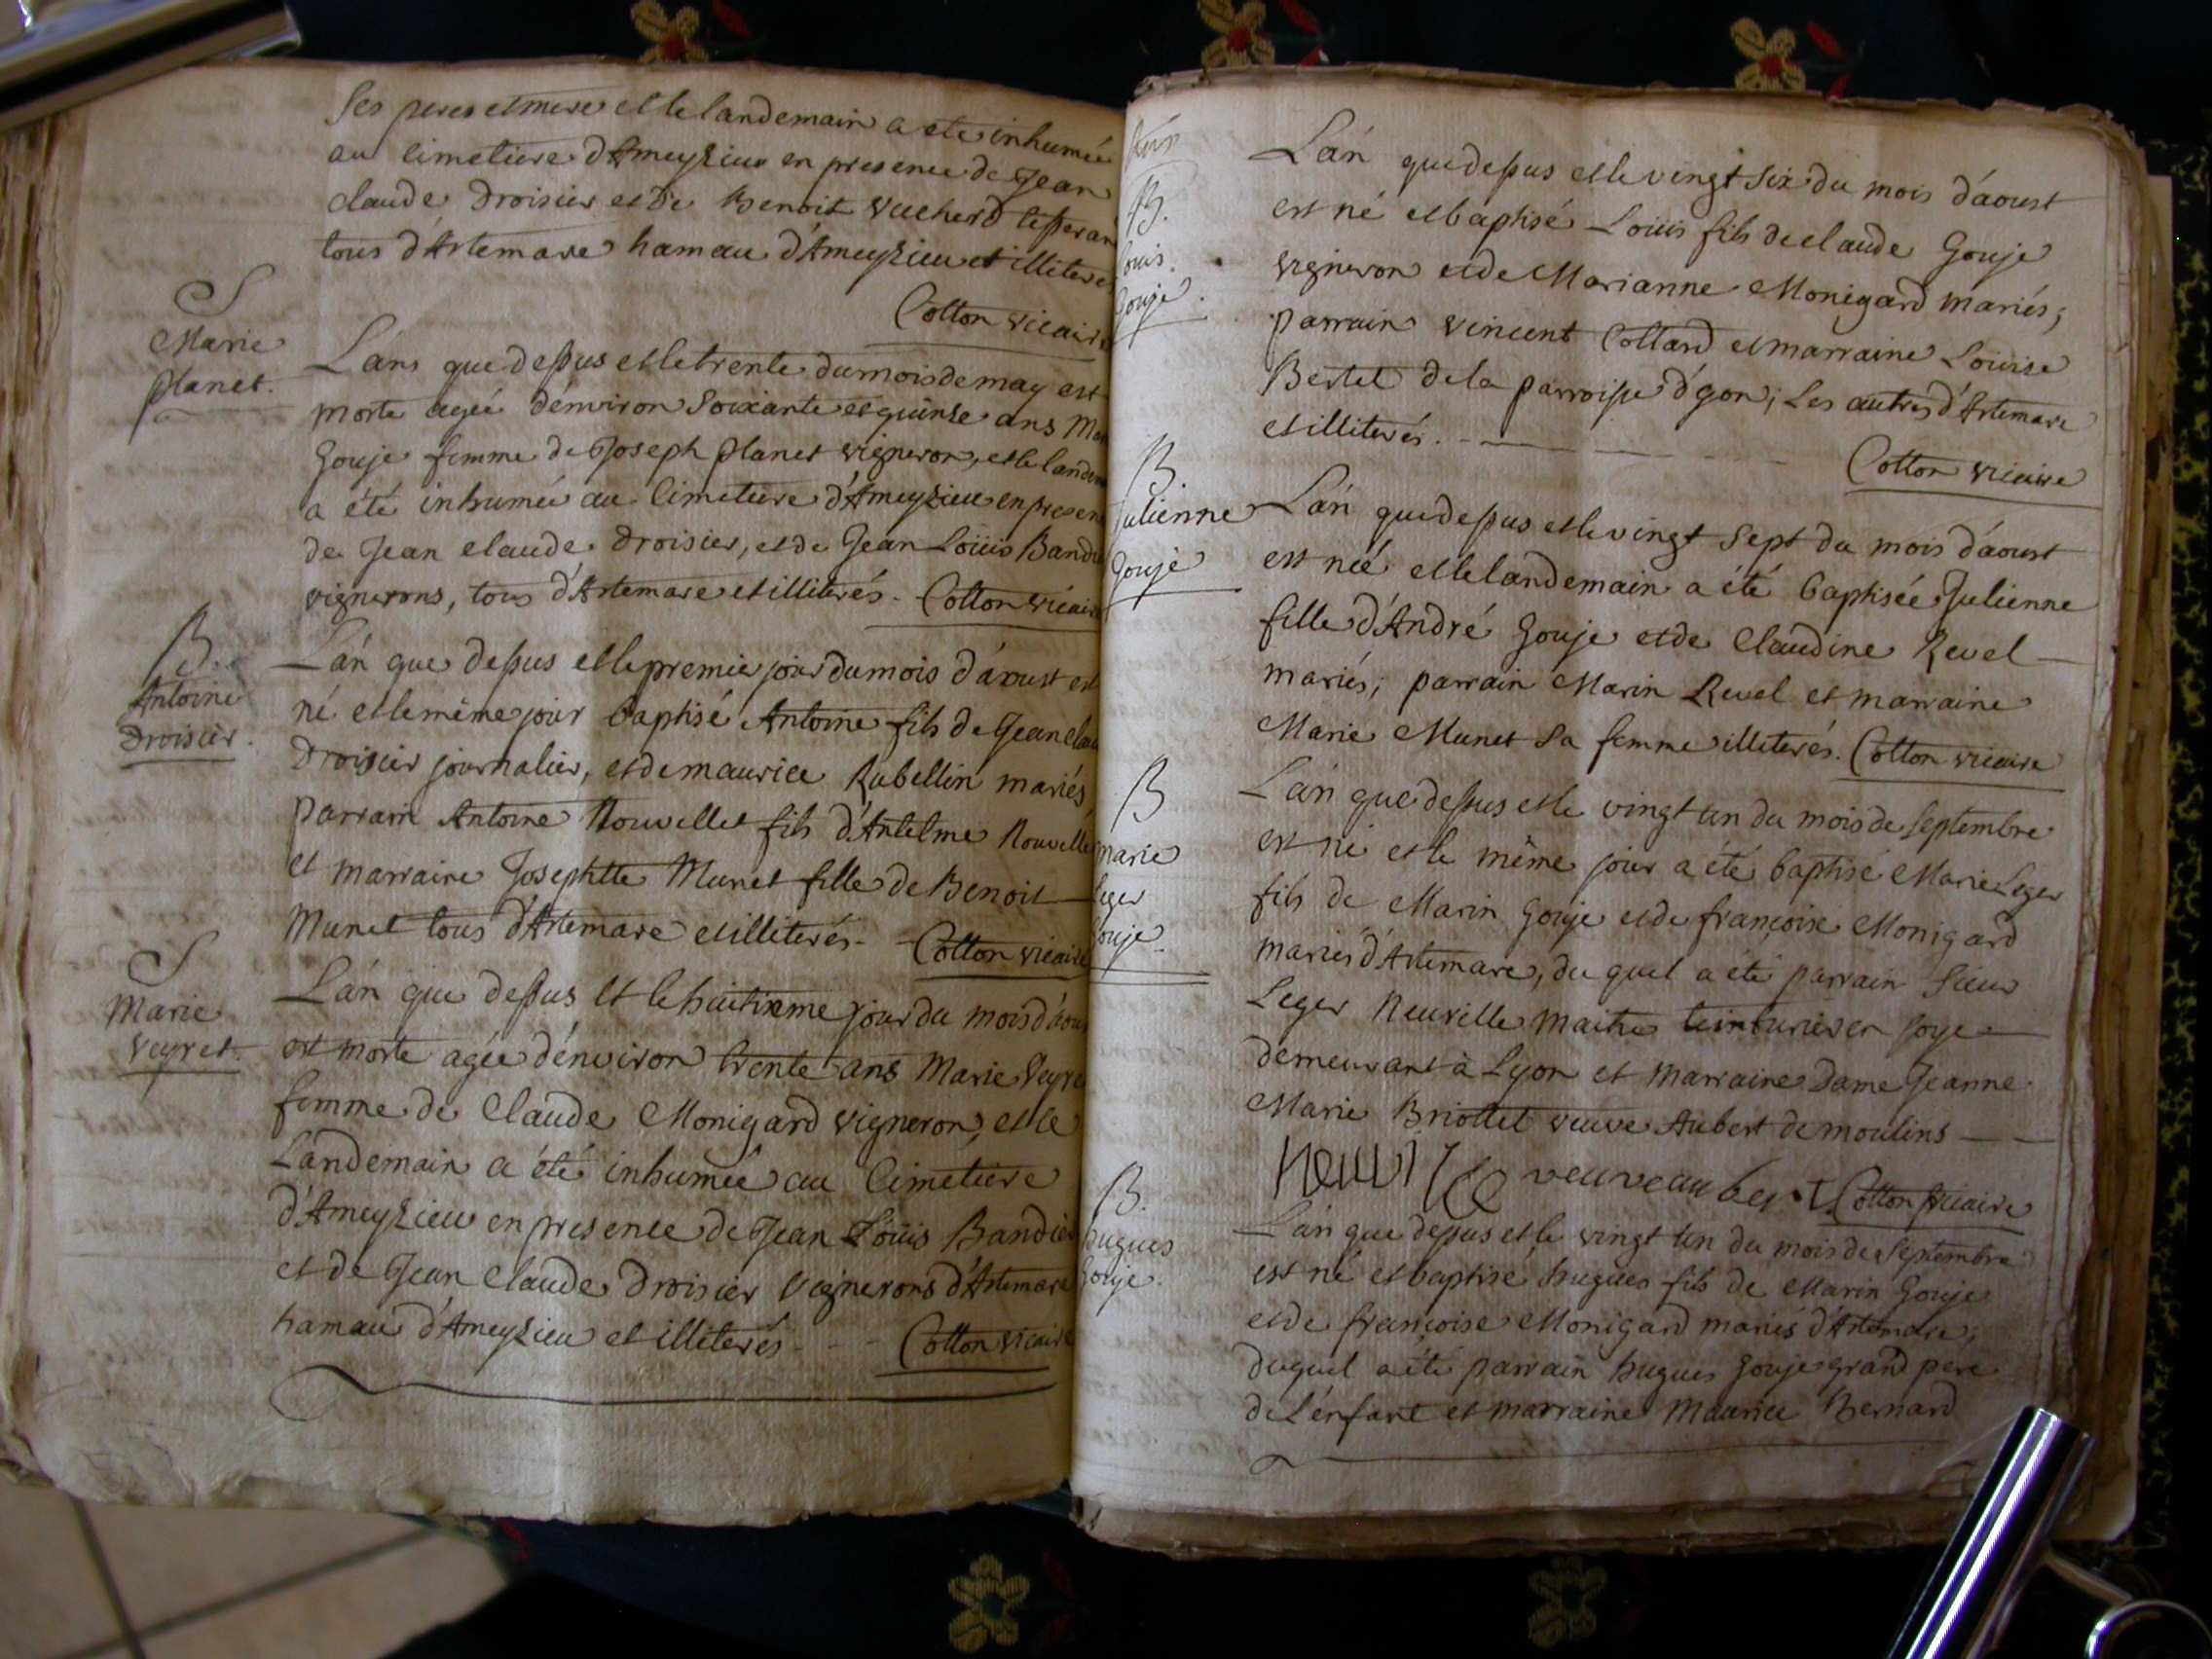 ses peres et mere et le landemain a eté inhumée
au cimetiere d'Ameyzieu en presence de Jean
claude Droisier et de Benoit Vucherd tisseran
tous d'Artemare hamau d'Ameyzieu et illiteres
Cotton vicaire
S
Marie
planet.
L'an que dessus et le trente du mois de may est
morte agée d'environ soixante et quinse ans Mar
Gouje femme de Joseph planet vigneron, et le landem
a été inhumée au cimetiere d'Ameyzieu en presen
de Jean claude Droisier, et de Jean Loüis Bandi
vignerons, tous d'Artemare et illiterés. Cotton vicaire
B.
Antoine
Droisier.
L'an que dessus et le premier jour du mois d'aoust est
né et le même jour baptisé Antoine fils de Jean clau
Droisier journalier, et de maurice Rubellin mariés,
parrain Antoine Nouvellet fils d'Antelme Nouvelle
et marraine Josephtte Munet fille de Benoit
Munet tous d'Artemare et illiterés. Cotton vicaire
S
Marie
veyret.
L'an que dessus et le huitixme jour du mois d'aou
est morte agée d'environ trente ans Marie Veyre
femme de Claude Monigard vigneron, et le
Landemain a été inhumée au Cimetiere
d'Ameyzieu en presence de Jean Loüis Bandie
et de Jean Claude Droisier Vignerons d'Artemare
hamau d'Ameyzieu et illiterés Cotton vicaire
B.
ouis.
Gouje.
L'an que dessus et le vingt six du mois d'aoust
est né et baptisé Loüis fils de claude Gouje
vigneron et de Marianne Monigard mariés;
parrain vincent Collard et marraine Loüise
Bertet de la parroisse d'yon; Les autres d'Artemare
et illiterés.
Cotton vicaire
B
Julienne
Gouje
L'an que dessus et le vingt sept du mois d'aoust
est née et le landemain a été baptisée Julienne
fille d'André Gouje et de Claudine Revel
mariés; parrain Marin Revel et marraine
Marie Munet sa femme illiterés. Cotton vicaire
B
Marie
Leger
Gouje.
L'an que dessus et le vingt un du mois de septembre
est né et le même jour a été baptisé Marie Leger
fils de Marin Gouje et de françoise Monigard
mariés d'Artemare, du quel a été parrain sieur
Leger Neuville maitre teinturier en soye
demeurant à Lyon et marraine Dame Jeanne
Marie Briottet veuve Aubert de moulins
veuve aubert Cotton vicaire
B.
hugues
Gouje.
L'an que dessus et le vingt un du mois de septembre
est né et baptisé hugues fils de Marin Gouje
et de françoise Monigard mariés d'Artemare;
duquel a été parrain hugues Gouje grand pere
de L'enfant et marraine Maurice Bernard